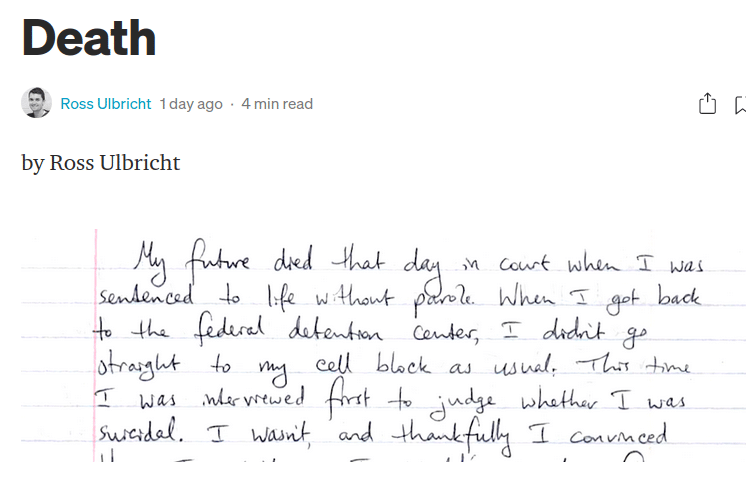 Death
Ross Ulbricht 1 day ago · 4 min read
by Ross Ulbricht
My future died that day in court when I was
sentenced to life without parole. When I got back
to the federal detention center, I didn't go
straight to my cell block as usual. This time
I was interviewed first to judge whether I was
suicidal. I wasn't, and thankfully I convinced